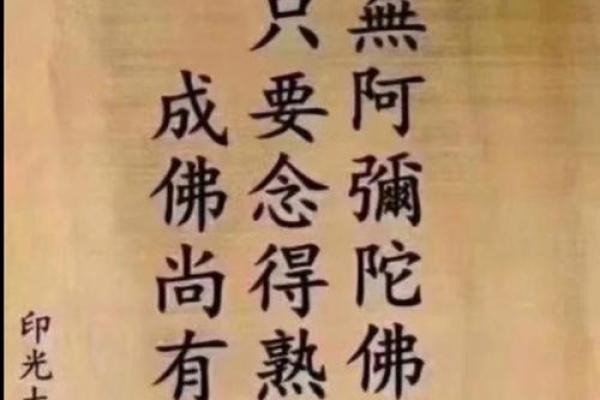 無阿彌陀佛
只要念得熟
成佛尚有
印光